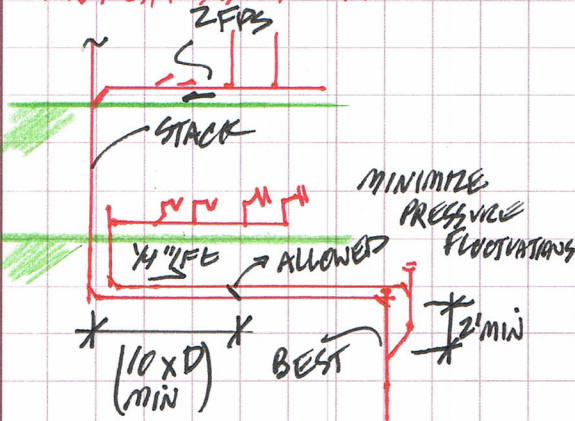 2FPS
STACK
MINIMIZE
PRESSURE
FLUCTUATIONS
1/4"/FT
ALLOWED
(10 x D)
MIN
BEST
2' MIN